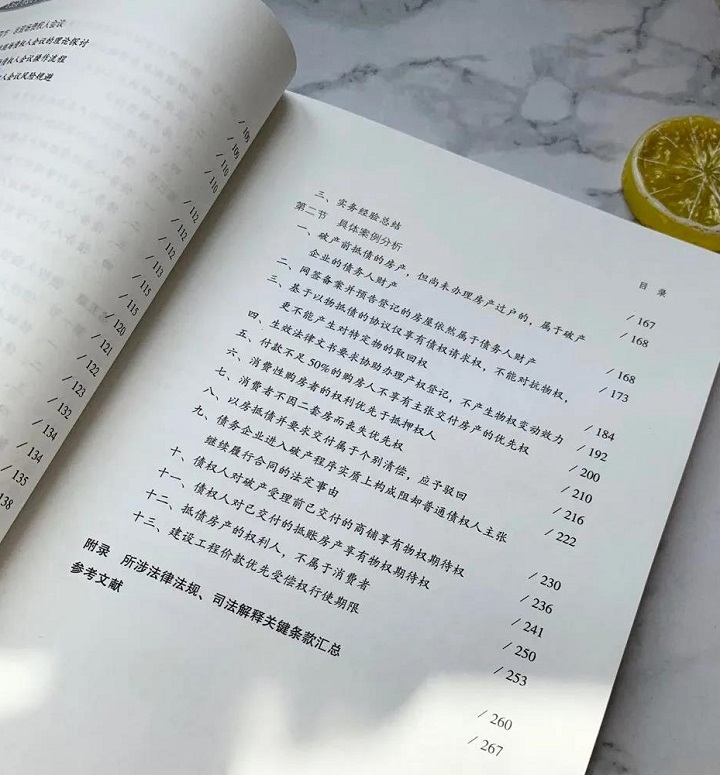 债权人会议的理论探讨
人会议操作流程
人会议风险规避
/ 109
/ 109
/ 110
/ 110
/ 112
/ 112
/ 113
/ 115
/ 115
/ 120
/ 121
/ 122
/ 123
/ 132
/ 134
/ 134
/ 135
138
目 录
三、实务经验总结 / 167
第二节 具体案例分析 / 168
一、破产前抵债的房产，但尚未办理房产过户的，属于破产
企业的债务人财产 / 168
二、网签备案并预告登记的房屋依然属于债务人财产 / 173
三、基于以物抵债的协议仅享有债权请求权，不能对抗物权，
更不能产生对特定物的取回权 / 184
四、生效法律文书要求协助办理产权登记，不产生物权变动效力 / 192
五、付款不足50%的购房人不享有主张交付房产的优先权 / 200
六、消费性购房者的权利优先于抵押权人 / 210
七、消费者不因二套房而丧失优先权 / 216
八、以房抵债并要求交付属于个别清偿，应予驳回 / 222
九、债务企业进入破产程序实质上构成阻却普通债权人主张
继续履行合同的法定事由 / 230
十、债权人对破产受理前已交付的商铺享有物权期待权 / 236
十一、债权人对已交付的抵账房产享有物权期待权 / 241
十二、抵债房产的权利人，不属于消费者 / 250
十三、建设工程价款优先受偿权行使期限 / 253
附录 所涉法律法规、司法解释关键条款汇总 / 260
参考文献 / 267